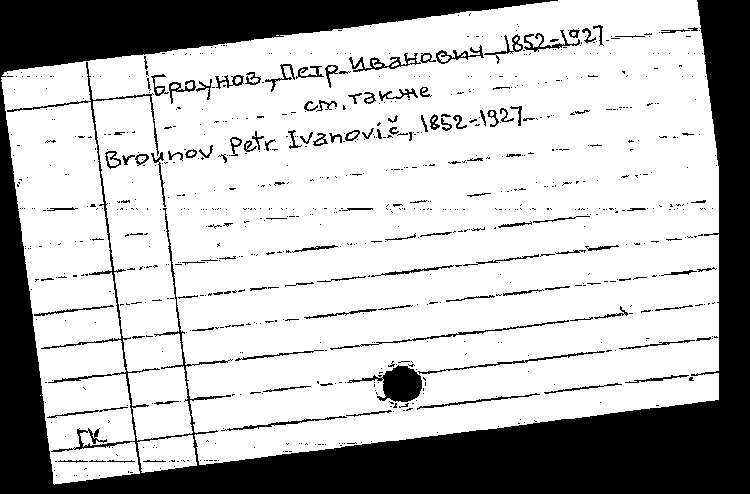 Броунов, Петр Иванович, 1852-1927
см. также
Brounov, Petr Ivanovič, 1852-1927
ГК